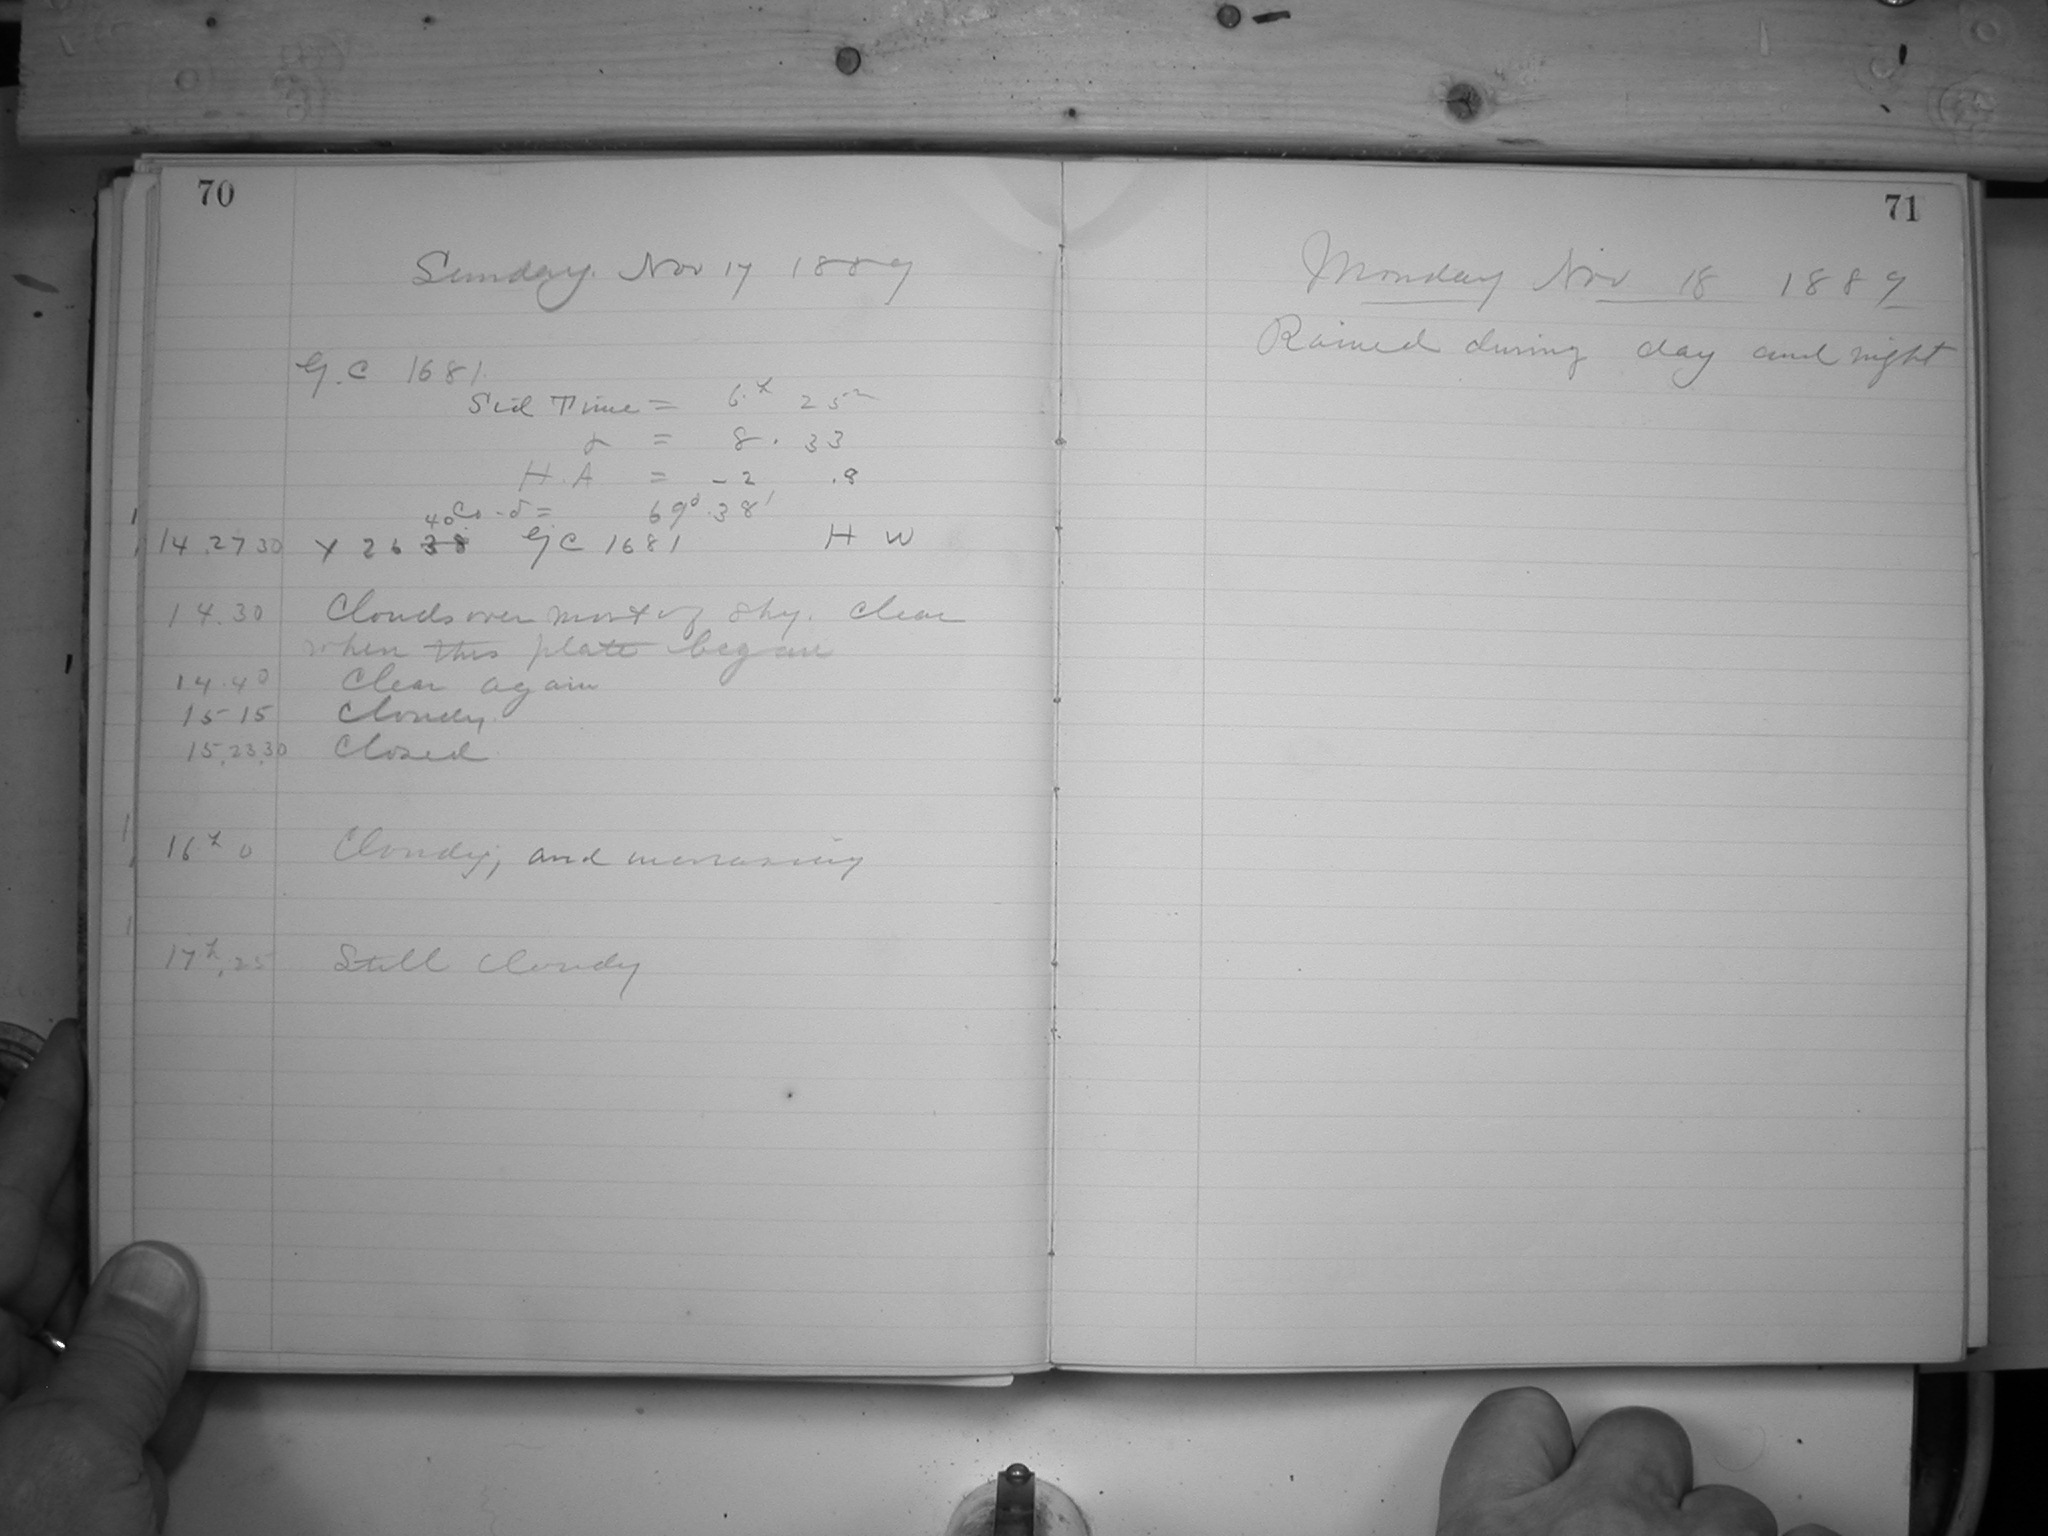 70
Sunday. Nov 17 1889
G.C 1681.
Sid Time = 6.h 25m
α = 8. 33
H.A = -2 .8
Co-δ = 69°.38'
40
14.27 30 Y 26 38 G C 1681 H W
14.30 Clouds over most of sky. Clear
when this plate began
14.40 Clear again
15 15 Cloudy.
15.23.30 Closed
16h 0 Cloudy, and increasing
17h.25 Still Cloudy
71
Monday Nov 18 1889
Rained during day and night